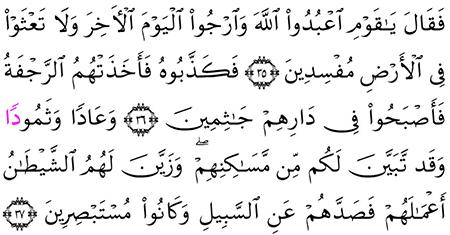 فَقَالَ يَـٰقَوْمِ ٱعْبُدُوا۟ ٱللَّهَ وَٱرْجُوا۟ ٱلْيَوْمَ ٱلْـَٔاخِرَ وَلَا تَعْثَوْا۟
فِى ٱلْأَرْضِ مُفْسِدِينَ ٣٥ فَكَذَّبُوهُ فَأَخَذَتْهُمُ ٱلرَّجْفَةُ
فَأَصْبَحُوا۟ فِى دَارِهِمْ جَـٰثِمِينَ ٣٦ وَعَادًا وَثَمُودًا
وَقَد تَّبَيَّنَ لَكُم مِّن مَّسَـٰكِنِهِمْ ۖ وَزَيَّنَ لَهُمُ ٱلشَّيْطَـٰنُ
أَعْمَـٰلَهُمْ فَصَدَّهُمْ عَنِ ٱلسَّبِيلِ وَكَانُوا۟ مُسْتَبْصِرِينَ ٣٧